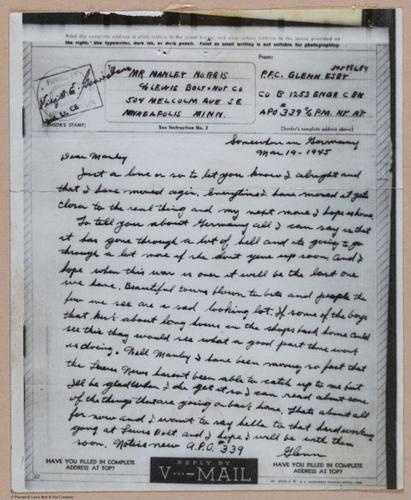 Print the complete address in plain letters in the panel below, and your return address in the space provided on
the right. Use typewriter, dark ink, or dark pencil. Faint or small writing is not suitable for photographing.
MR MANLEY NORRIS
℅ LEWIS BOLT + NUT CO
504 MELCOLM AVE S E
MINNEAPOLIS MINN.
From:
P.F.C. GLENN ESBY
CO B 1253 ENGR C BN
APO 339 ℅ P.M. NY NY
(CENSOR'S STAMP)
See Instruction No. 2
(Sender's complete address above)
Somewhere in Germany
Mar 19 - 1945
Dear Manley
Just a line or so to let you know I alright and
that I have moved agin. Everytime I have moved it gets
closer to the real thing and my next move I hope is home.
To tell you about Germany all I can say is that
it has gone through a lot of hell and its going to go
through a lot more if she dont give up soon. And I
hope when this war is over it will be the last one
we have. Beautiful towns blown to bits and people the
few we see are a sad looking lot. If some of the boys
that kick about long hours in the shops back home could
see this they would see what a good part there work
is doing. Well Manley I have been moving so fast that
the Lewis News havent been able to catch up to me but
I'll be glad when I do get it so I can read about some
of the things that are going on back home. Thats about all
for now and I want to say hello to that hard working
gang at Lewis Bolt and I hope I will be with them
soon. Notice new A.P.O. 339
Glenn
HAVE YOU FILLED IN COMPLETE
ADDRESS AT TOP?
REPLY BY
V···—MAIL
HAVE YOU FILLED IN COMPLETE
ADDRESS AT TOP?